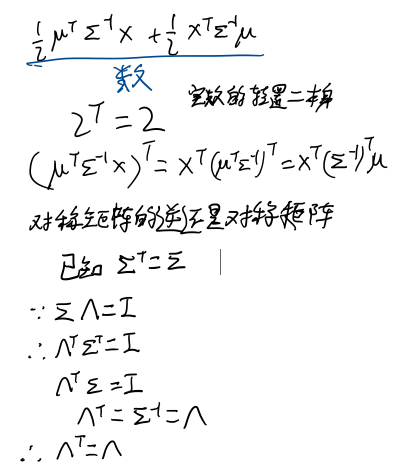 ½ μᵀ Σ⁻¹ x + ½ xᵀ Σ⁻¹ μ
数
实数的转置=本身
2ᵀ = 2
(μᵀ Σ⁻¹ x)ᵀ = xᵀ (μᵀ Σ⁻¹)ᵀ = xᵀ (Σ⁻¹)ᵀ μ
对称矩阵的逆还是对称矩阵
已知 Σᵀ = Σ
∵ Σ Λ = I
∴ Λᵀ Σᵀ = I
Λᵀ Σ = I
Λᵀ = Σ⁻¹ = Λ
∴ Λᵀ = Λ